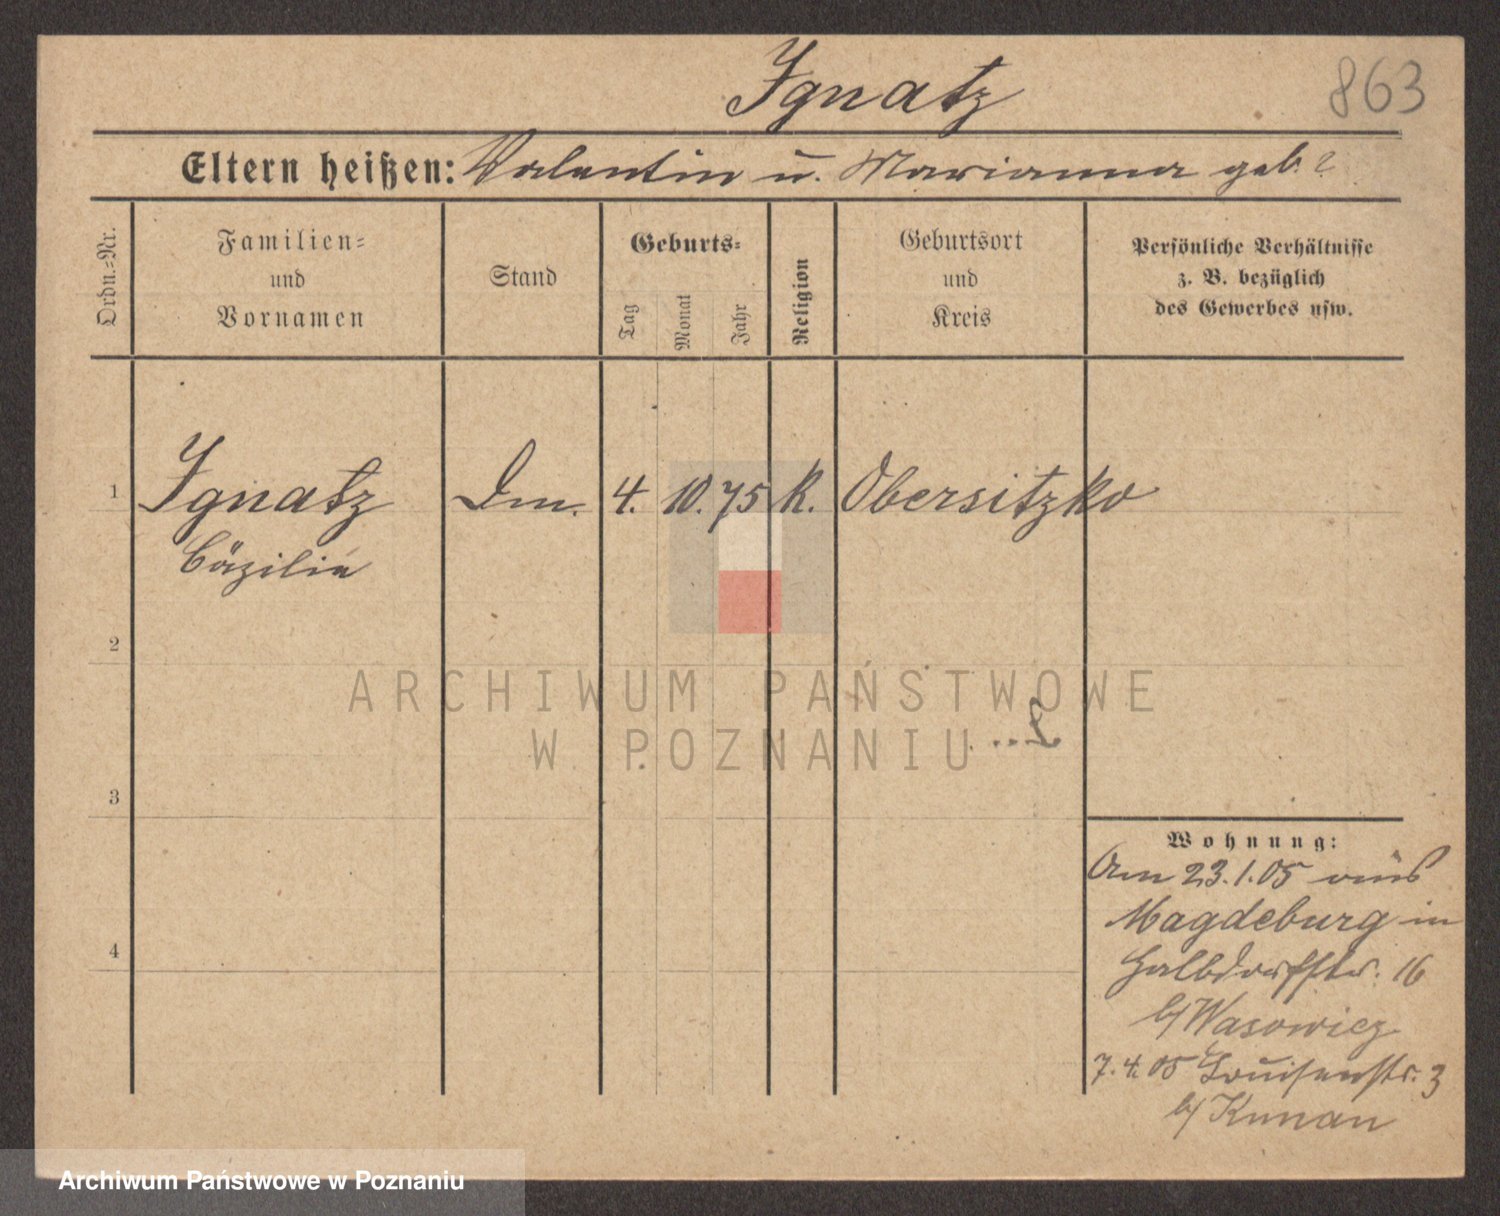 Ignatz
863
Eltern heißen: Valentin u. Marianna geb. ?
Ordn.-Nr.
Familien-
und
Vornamen
Stand
Geburts-
Tag
Monat
Jahr
Religion
Geburtsort
und
Kreis
Persönliche Verhältnisse
z. B. bezüglich
des Gewerbes usw.
1 Ignatz 4. 10. 75 K. Obersitzko
Cäzilia
2
3
4
ARCHIWUM PAŃSTWOWE
W POZNANIU
Wohnung:
Am 23.1.05 aus
Magdeburg in
Halbdorfstr. 16
b/ Wasowicz
7.4.05 Louisenstr. 3
b/ Kunan
Archiwum Państwowe w Poznaniu